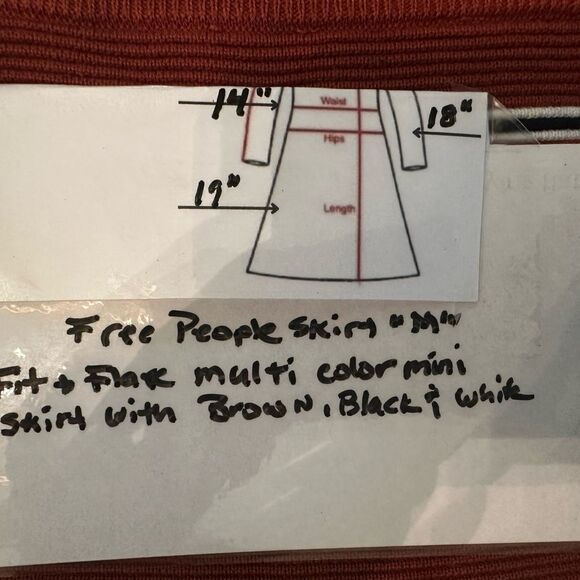 14"
Waist
18"
Hips
19"
Length
Free People Skirt "M"
Fit & Flare multi color mini
skirt with Brown, Black & White